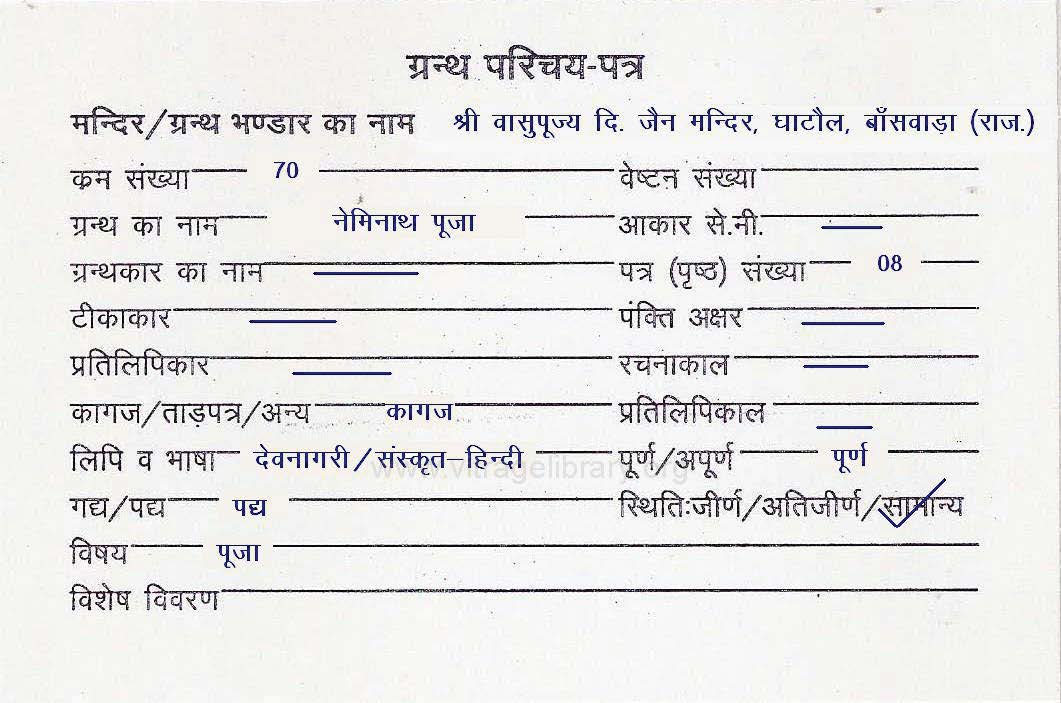 ग्रन्थ परिचय-पत्र
मन्दिर/ग्रन्थ भण्डार का नाम श्री वासुपूज्य दि. जैन मन्दिर, घाटौल, बाँसवाड़ा (राज.)
कम संख्या 70 वेष्टन संख्या
ग्रन्थ का नाम नेमिनाथ पूजा आकार से.मी.
ग्रन्थकार का नाम पत्र (पृष्ठ) संख्या 08
टीकाकार पंक्ति अक्षर
प्रतिलिपिकार रचनाकाल
कागज/ताड़पत्र/अन्य कागज प्रतिलिपिकाल
लिपि व भाषा देवनागरी/संस्कृत-हिन्दी पूर्ण/अपूर्ण पूर्ण
www.vitragelibrary.org
गद्य/पद्य पद्य स्थितिःजीर्ण/अतिजीर्ण/सामान्य
विषय पूजा
विशेष विवरण